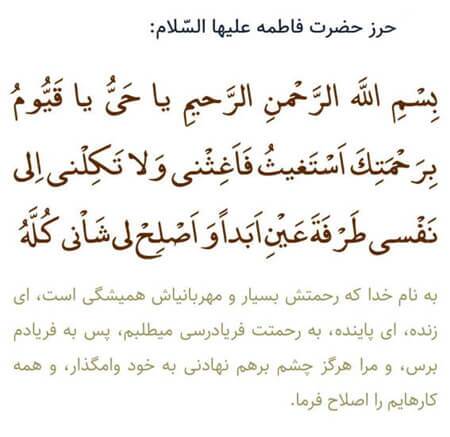 حرز حضرت فاطمه علیها السّلام:
بِسْمِ اللَّهِ الرَّحْمنِ الرَّحیمِ یا حَیُّ یا قَیُّومُ
بِرَحْمَتِكَ اَسْتَغیثُ فَاَغِثْنى وَلا تَكِلْنى اِلى
نَفْسى طَرْفَةَ عَیْنٍ اَبَداً وَ اَصْلِحْ لى شَاْنى كُلَّهُ
به نام خدا که رحمتش بسیار و مهربانی‌اش همیشگی است، ای
زنده، ای پاینده، به رحمتت فریادرسی میطلبم، پس به فریادم
برس، و مرا هرگز چشم برهم نهادنی به خود وامگذار، و همه
کارهایم را اصلاح فرما.